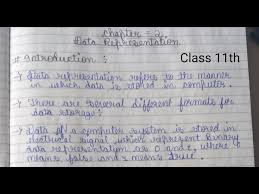 Chapter = 2
Data Representation
# Introduction :
Class 11th
→ Data representation refers to the manner
in which data is stored in computer.
→ There are several different formats for
data storage:
→ Data of a computer system is stored in
electrical signal which represent binary
data representation are 0 and 1, where 0
means false and 1 means true.